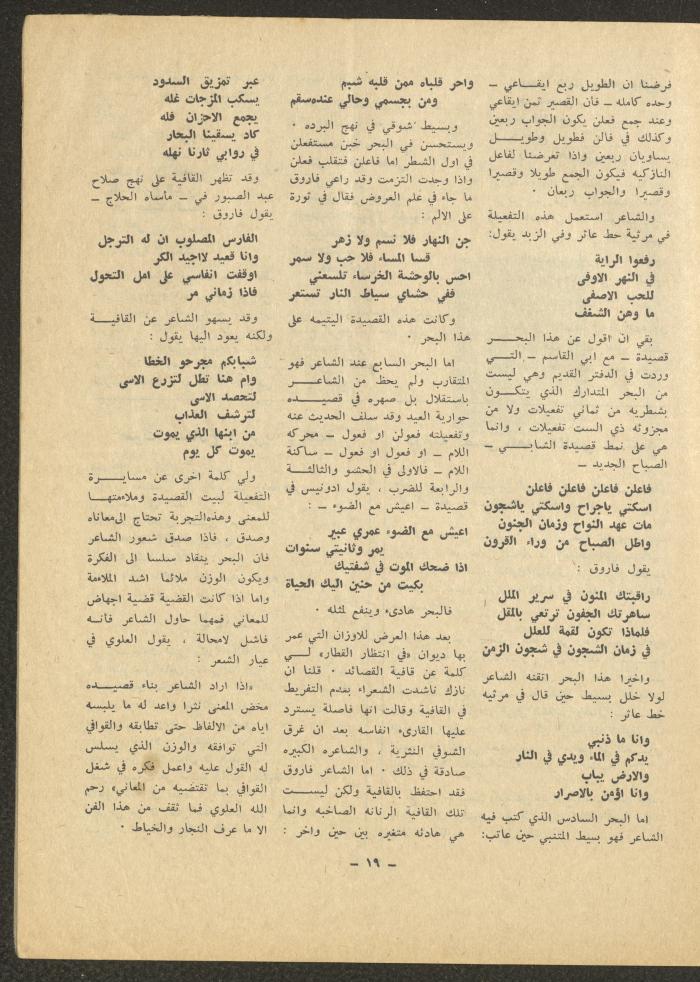 فرضنا ان الطويل ربع ايقاعي —
وحده كامله — فان القصير ثمن ايقاعي
وعند جمع فعلن يكون الجواب ربعين
وكذلك في فالن فطويل وطويـــل
يساويان ربعين واذا تعرضنا لفاعل
النازكيه فيكون الجمع طويلا وقصيرا
وقصيرا والجواب ربعان ٠
والشاعر استعمل هذه التفعيلة
في مرثية حط عاثر وفي الزبد يقول:
رفعوا الراية
في النهر الاوفى
للحب الاصفى
ما وهن الشغف
بقي ان اقول عن هذا البحـــر
قصيدة — مع ابي القاسم — التـــي
وردت في الدفتر القديم وهي ليست
من البحر المتدارك الذي يتكـــون
بشطريه من ثماني تفعيلات ولا من
مجزوئه ذي الست تفعيلات ، وانما
هي على نمط قصيدة الشابـــي —
الصباح الجديد —
فاعلن فاعلن فاعلن فاعلن
اسكتي ياجراح واسكتي ياشجون
مات عهد النواح وزمان الجنون
واطل الصباح من وراء القرون
يقول فاروق :
راقبتك المنون في سرير الملل
ساهرتك الجفون ترتعي بالمقل
فلماذا تكون لقمة للعلل
في زمان الشجون في شجون الزمن
واخيرا هذا البحر اتقنه الشاعر
لولا خلل بسيط حين قال في مرثيه
خط عاثر :
وانا ما ذنبي
يدكم في الماء ويدي في النار
والارض يباب
وانا اؤمن بالاصرار
اما البحر السادس الذي كتب فيه
الشاعر فهو بسيط المتنبي حين عاتب:
واحر قلباه ممن قلبه شبم
ومن بجسمي وحالي عنده سقم
وبسيط شوقي في نهج البرده ٠
ويستحسن في البحر خبن مستفعلن
في اول الشطر اما فاعلن فتقلب فعلن
واذا وجدت التزمت وقد راعي فاروق
ما جاء في علم العروض فقال في ثورة
على الالم :
جن النهار فلا نسم ولا زهر
قسا المساء فلا حب ولا سمر
احس بالوحشة الخرساء تلسعني
ففي حشاي سياط النار تستعر
وكانت هذه القصيدة اليتيمه على
هذا البحر ٠
اما البحر السابع عند الشاعر فهو
المتقارب ولم يحظ من الشاعـــر
باستقلال بل صهره في قصيـــده
حوارية العيد وقد سلف الحديث عنه
وتفعيلته فعولن او فعول — محركه
اللام — او فعول او فعول — ساكنة
اللام — فالاولى في الحشو والثالثـــة
والرابعة للضرب ، يقول ادونيس في
قصيدة — اعيش مع الضوء — :
اعيش مع الضوء عمري عبير
يمر وثانيتي سنوات
اذا ضحك الموت في شفتيك
بكيت من حنين اليك الحياة
فالبحر هادىء وينفع لمثله ٠
بعد هذا العرض للاوزان التي عمر
بها ديوان «في انتظار القطار» لـــي
كلمة عن قافية القصائد ٠ قلنا ان
نازك ناشدت الشعراء بعدم التفريط
في القافية وقالت انها فاصلة يسترد
عليها القارىء انفاسه بعد ان غرق
الشوفي النثرية ، والشاعره الكبيره
صادقة في ذلك ٠ اما الشاعر فاروق
فقد احتفظ بالقافية ولكن ليســـت
تلك القافية الرنانه الصاخبه وانما
هي هادئه متغيره بين حين واخر :
عبر تمزيق السدود
يسكب المزجات غله
يجمع الاحزان فله
كاد يسقينا البحار
في روابي ثارنا نهله
وقد تظهر القافية على نهج صلاح
عبد الصبور في — مأساه الحلاج —
يقول فاروق :
الفارس المصلوب ان له الترجل
وانا قعيد لااجيد الكر
اوقفت انفاسي على امل التحول
فاذا زماني مر
وقد يسهو الشاعر عن القافيـــة
ولكنه يعود اليها يقول :
شبابكم مجرحو الخطا
وام هنا تطل لتزرع الاسى
لتحصد الاسى
لترشف العذاب
من ابنها الذي يموت
يموت كل يوم
ولي كلمة اخرى عن مسايـــرة
التفعيلة لبيت القصيدة وملاءمتهـــا
للمعنى وهذه التجربة تحتاج الى معاناه
وصدق ، فاذا صدق شعور الشاعر
فان البحر ينقاد سلسا الى الفكرة
ويكون الوزن ملائما اشد الملاءمة
واما اذا كانت القضية قضية اجهاض
للمعاني فمهما حاول الشاعر فانـــه
فاشل لامحالة ، يقول العلوي في
عيار الشعر :
«اذا اراد الشاعر بناء قصيـــده
مخض المعنى نثرا واعد له ما يلبسه
اياه من الالفاظ حتى تطابقه والقوافي
التي توافقه والوزن الذي يسلس
له القول عليه واعمل فكره في شغل
القوافي بما تقتضيه من المعاني» رحم
الله العلوي فما ثقف من هذا الفن
الا ما عرف النجار والخياط ٠
— ١٩ —